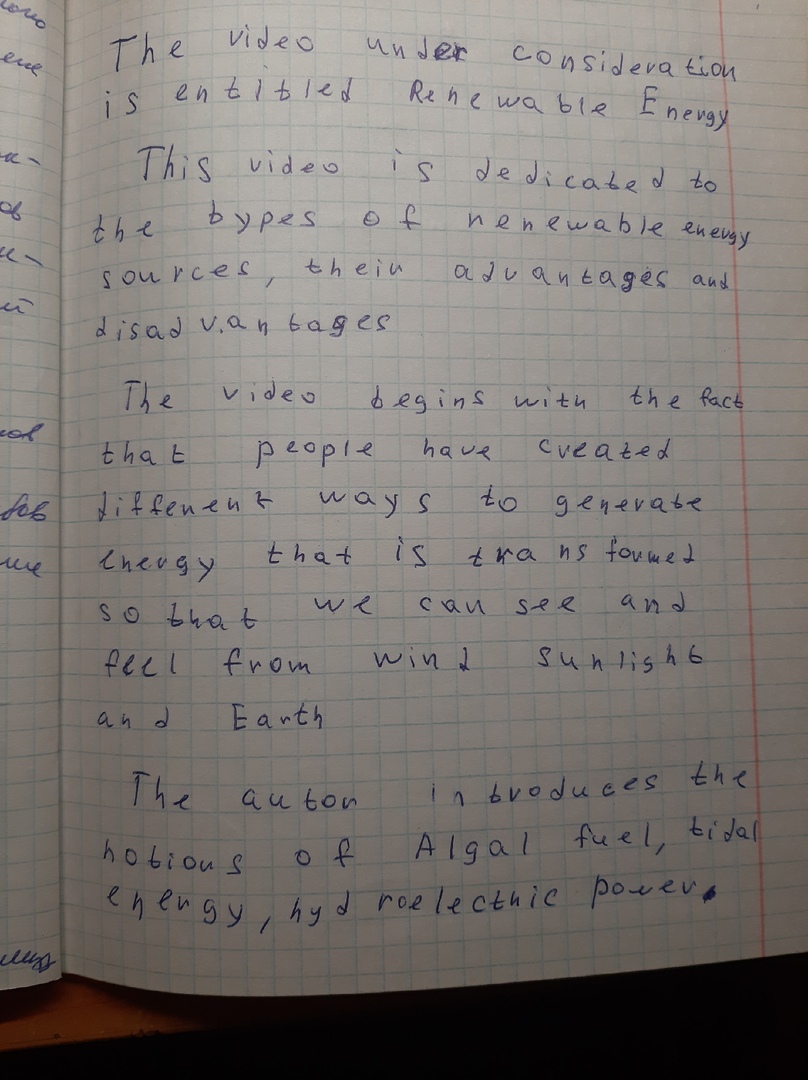 The video under consideration
is entitled Renewable Energy
This video is dedicated to
the types of renewable energy
sources, their advantages and
disadvantages
The video begins with the fact
that people have created
different ways to generate
energy that is transformed
so that we can see and
feel from wind sunlight
and Earth
The autor introduces the
notions of Algal fuel, tidal
energy, hydroelectric power.